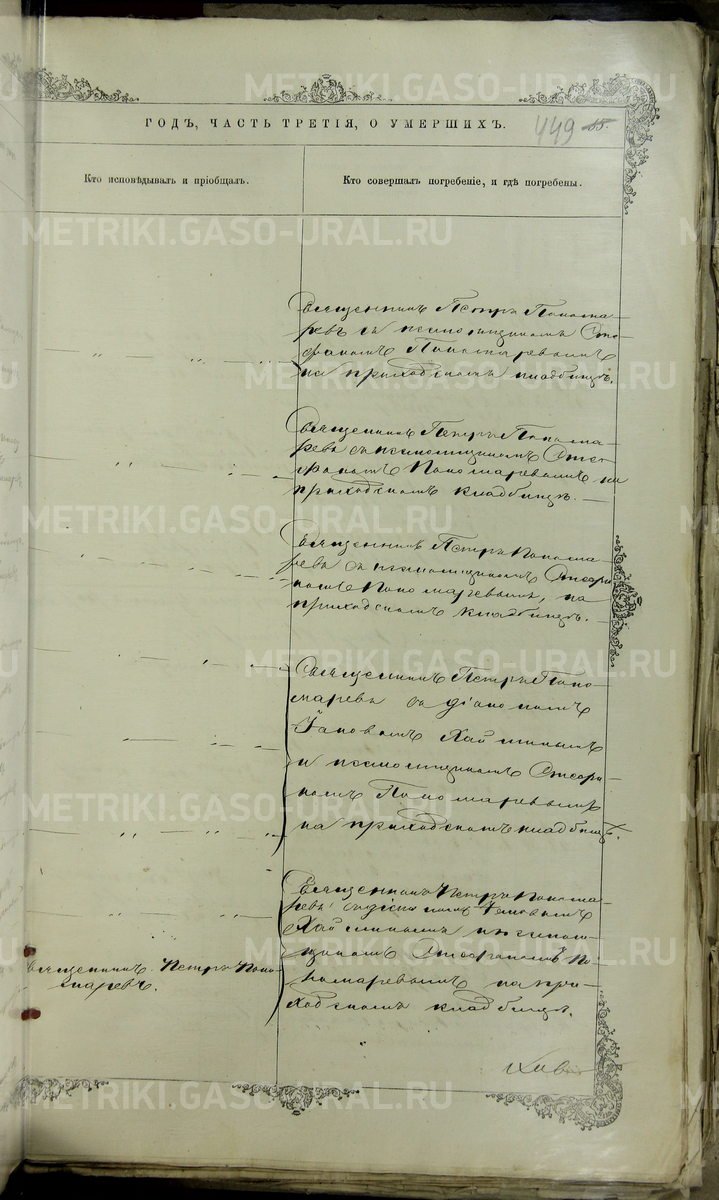 ГОДЪ, ЧАСТЬ ТРЕТІЯ, О УМЕРШИХЪ.
449
Кто исповѣдывалъ и пріобщалъ.
Кто совершалъ погребеніе, и гдѣ погребены.
Священникъ Петръ Понома-
ревъ съ псаломщикомъ Сте-
фаномъ Пономаревымъ
на приходскомъ кладбищѣ.
Священникъ Петръ Понома-
ревъ съ псаломщикомъ Сте-
фаномъ Пономаревымъ на
приходскомъ кладбищѣ.
Священникъ Петръ Понома-
ревъ съ псаломщикомъ Стефа-
номъ Пономаревымъ, на
приходскомъ кладбищѣ.
Священникъ Петръ Поно-
маревъ съ діакономъ
Іаковомъ
и псаломщикомъ Стефа-
номъ Пономаревымъ
на приходскомъ кладбищѣ.
Священникъ Петръ Понома-
ревъ съ діакономъ Іаковомъ
и псалом-
щикомъ Стефаномъ По-
номаревымъ на при-
ходскомъ кладбищѣ.
Священникъ Петръ Поно-
маревъ.
METRIKI.GASO-URAL.RU